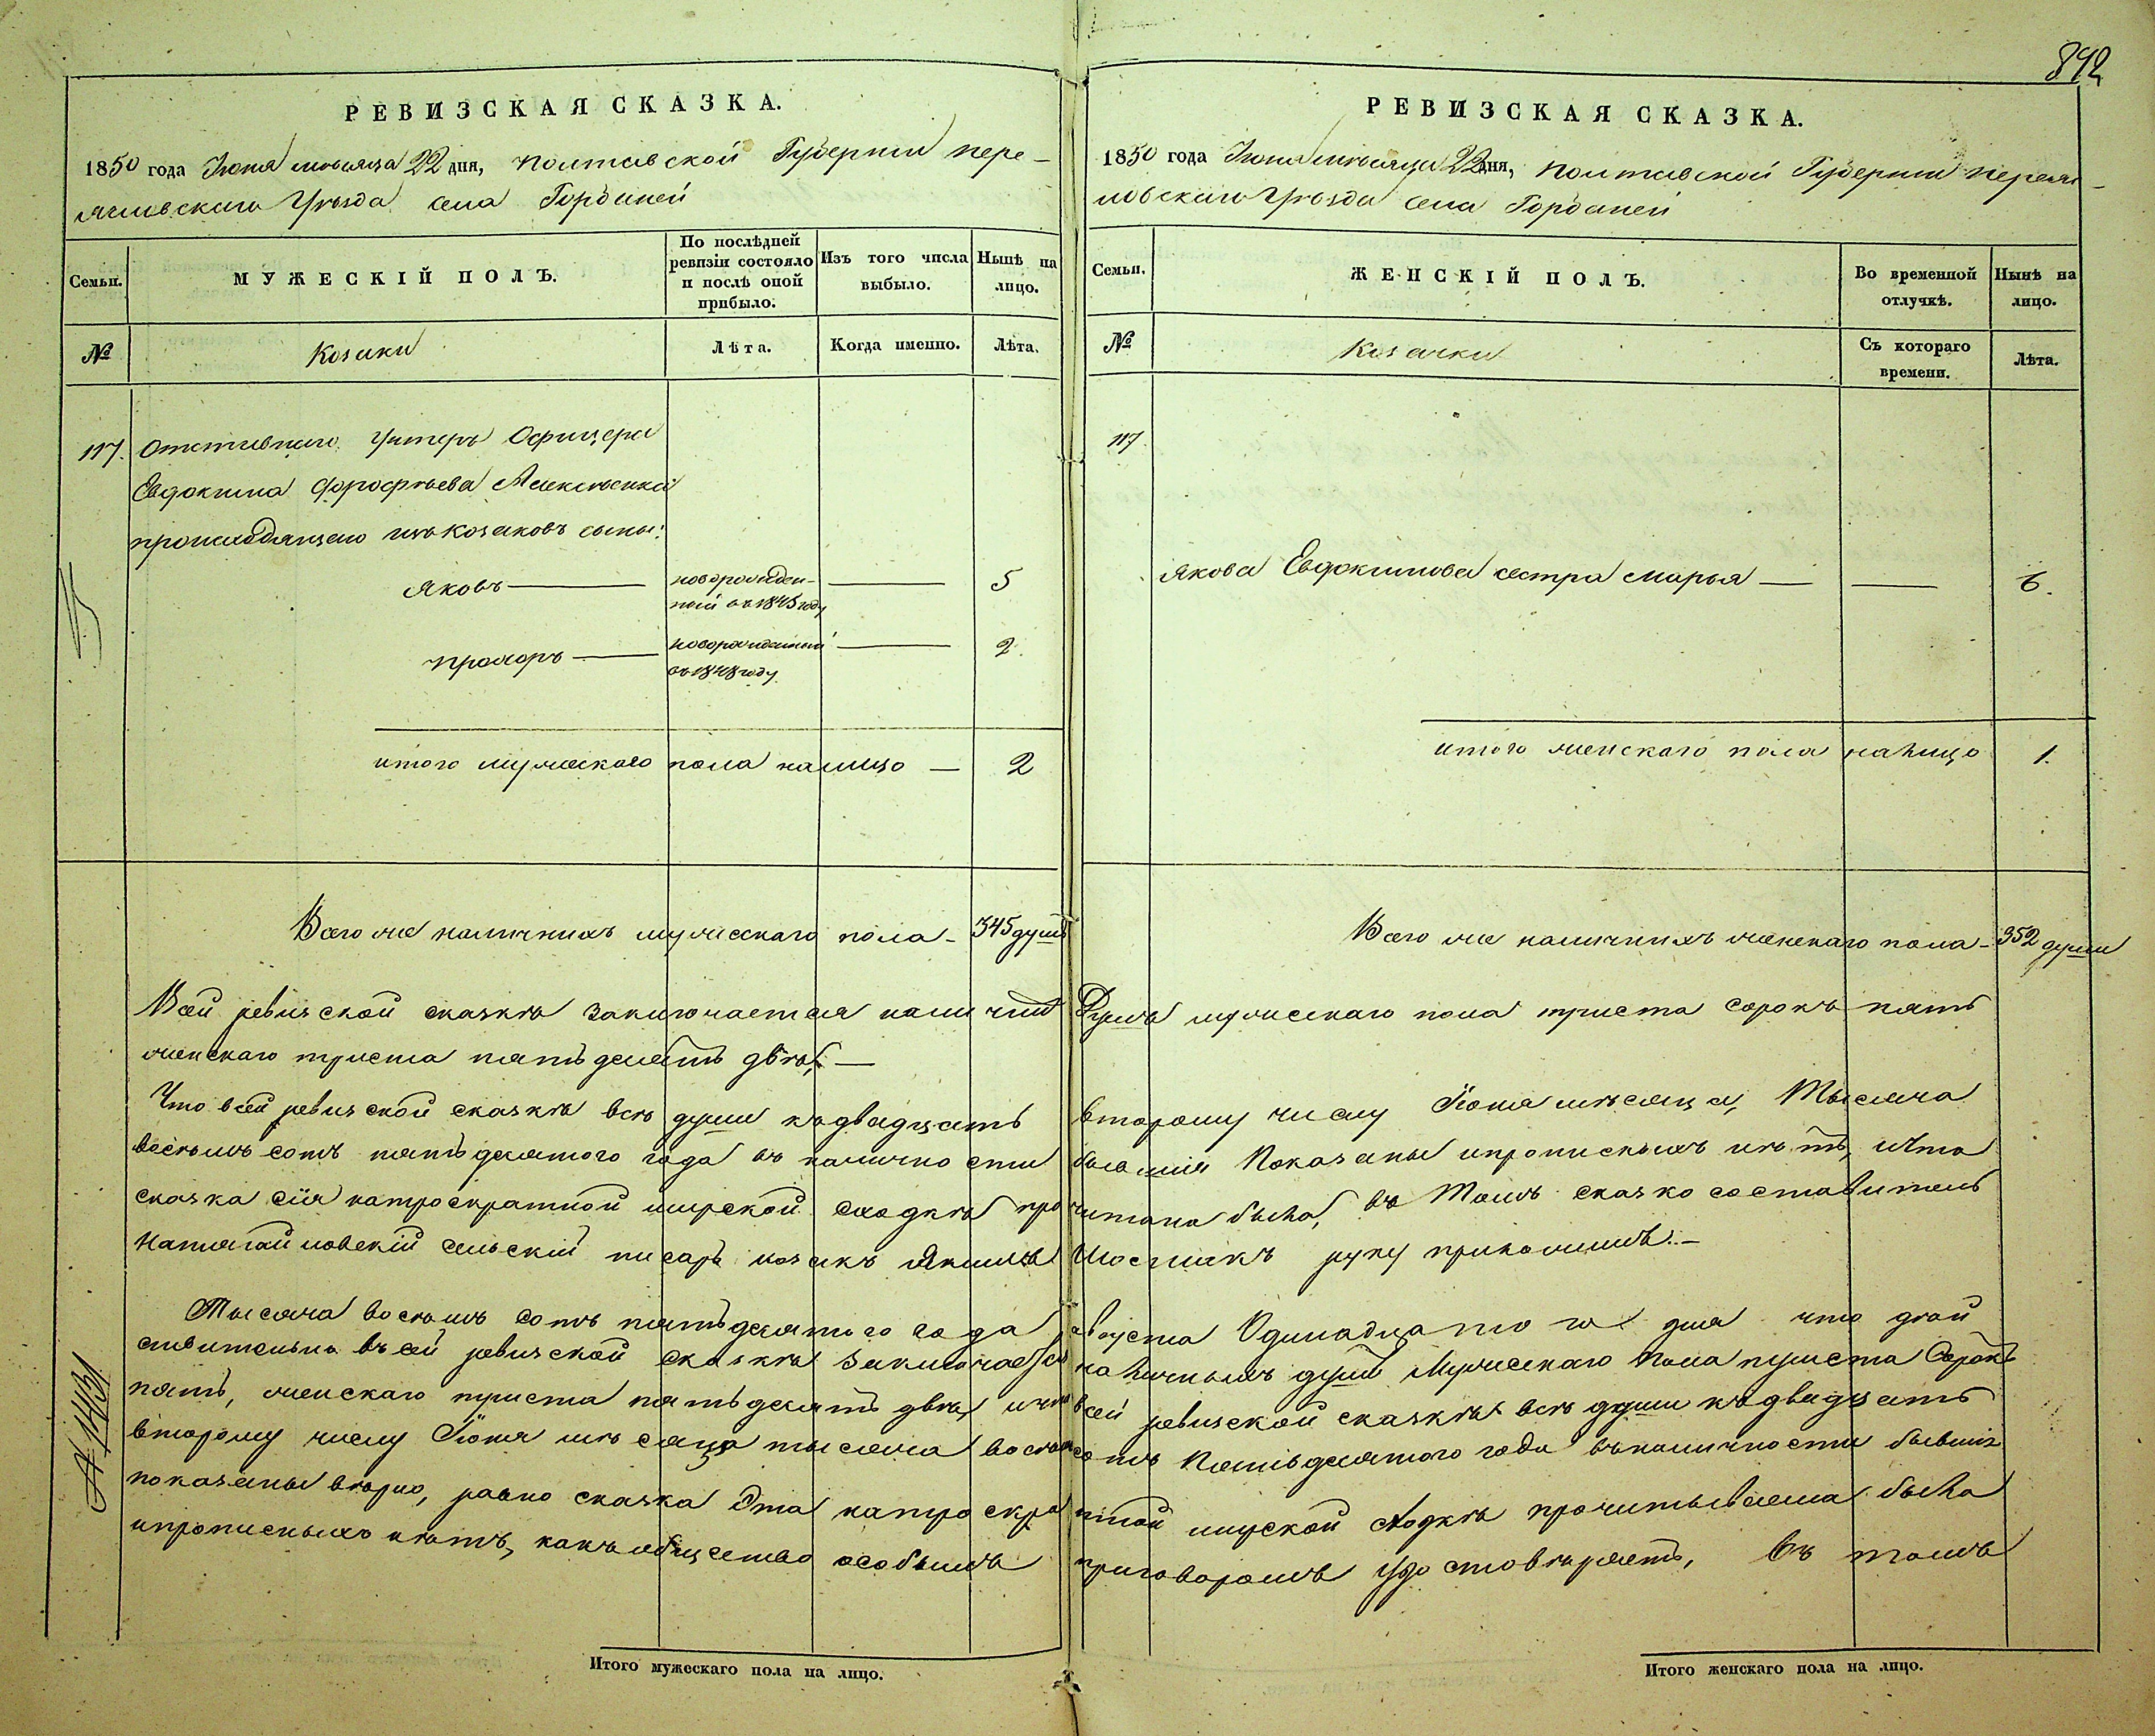 842
РЕВИЗСКАЯ СКАЗКА.
1850 года Июня мѣсяца 22 дня, Полтавской Губерніи пере-
яславскаго Уѣзда села Горбаней
Семьи.
МУЖЕСКІЙ ПОЛЪ.
По послѣдней ревизіи состояло и послѣ оной прибыло.
Изъ того числа выбыло.
Нынѣ на лицо.
№
Козаки
Лѣта.
Когда именно.
Лѣта.
117. Отставнаго Унтеръ Офицера
Евдокима Дорофѣева Алексѣенка
происходящаго изъ Козаковъ сыны:
Яковъ — новорожден- — 5
ный въ 1845 году
Прохоръ — новорожденный — 2.
въ 1848 году
итого мужескаго пола налицо — 2
Всего же наличныхъ мужескаго пола - 345 душъ
РЕВИЗСКАЯ СКАЗКА.
1850 года Июня мѣсяца 22 дня, Полтавской Губерніи переяс-
ловскаго Уѣзда села Горбаней
Семьи.
ЖЕНСКІЙ ПОЛЪ.
Во временной отлучкѣ.
Нынѣ на лицо.
№
Козачки
Съ котораго времени.
Лѣта.
117.
Якова Евдокимова сестра Марья — — 6.
итого женскаго пола налицо 1.
Всего же наличныхъ женскаго пола - 352 души
Всей ревизской сказкѣ заключается налични Душъ мужескаго пола триста сорокъ пять
женскаго триста пятьдесятъ двѣ, —
Что всей ревизской сказкѣ всѣ души къ двадцать второму числу Іюня мѣсяца, Тысяча
восѣмъ сотъ пятьдесятого года въ налично сти бывшія Показаны ипрописныхъ нѣтъ, иьта
сказка сія натроекратной мирской сходкѣ прочитана была, въ Томъ сказко составитель
сельскій писарь козакъ Якимъ руку приложилъ. —
Тысяча восѣмъ сотъ пятьдесятого года августа Одинадцатого дня что дѣй
ствительно въ сей ревизской сказкѣ заключается наличныхъ душъ Мужескаго Пола триста Сорокъ
пять, женскаго триста пятьдесятъ двѣ, ичто всей ревизской сказкѣ всѣ души къ двадцать
второму числу Іюня мѣсяца тысяча восѣмъ сотъ Пятьдесятого года въ наличности бывшія
показаны вѣрно, равно сказка Эта натроекратной мирской сходкѣ прочитываема была
ипрописныхъ нѣтъ, какъ общество особымъ приговоромъ удостовѣряетъ, въ томъ
Итого мужескаго пола на лицо.
Итого женскаго пола на лицо.